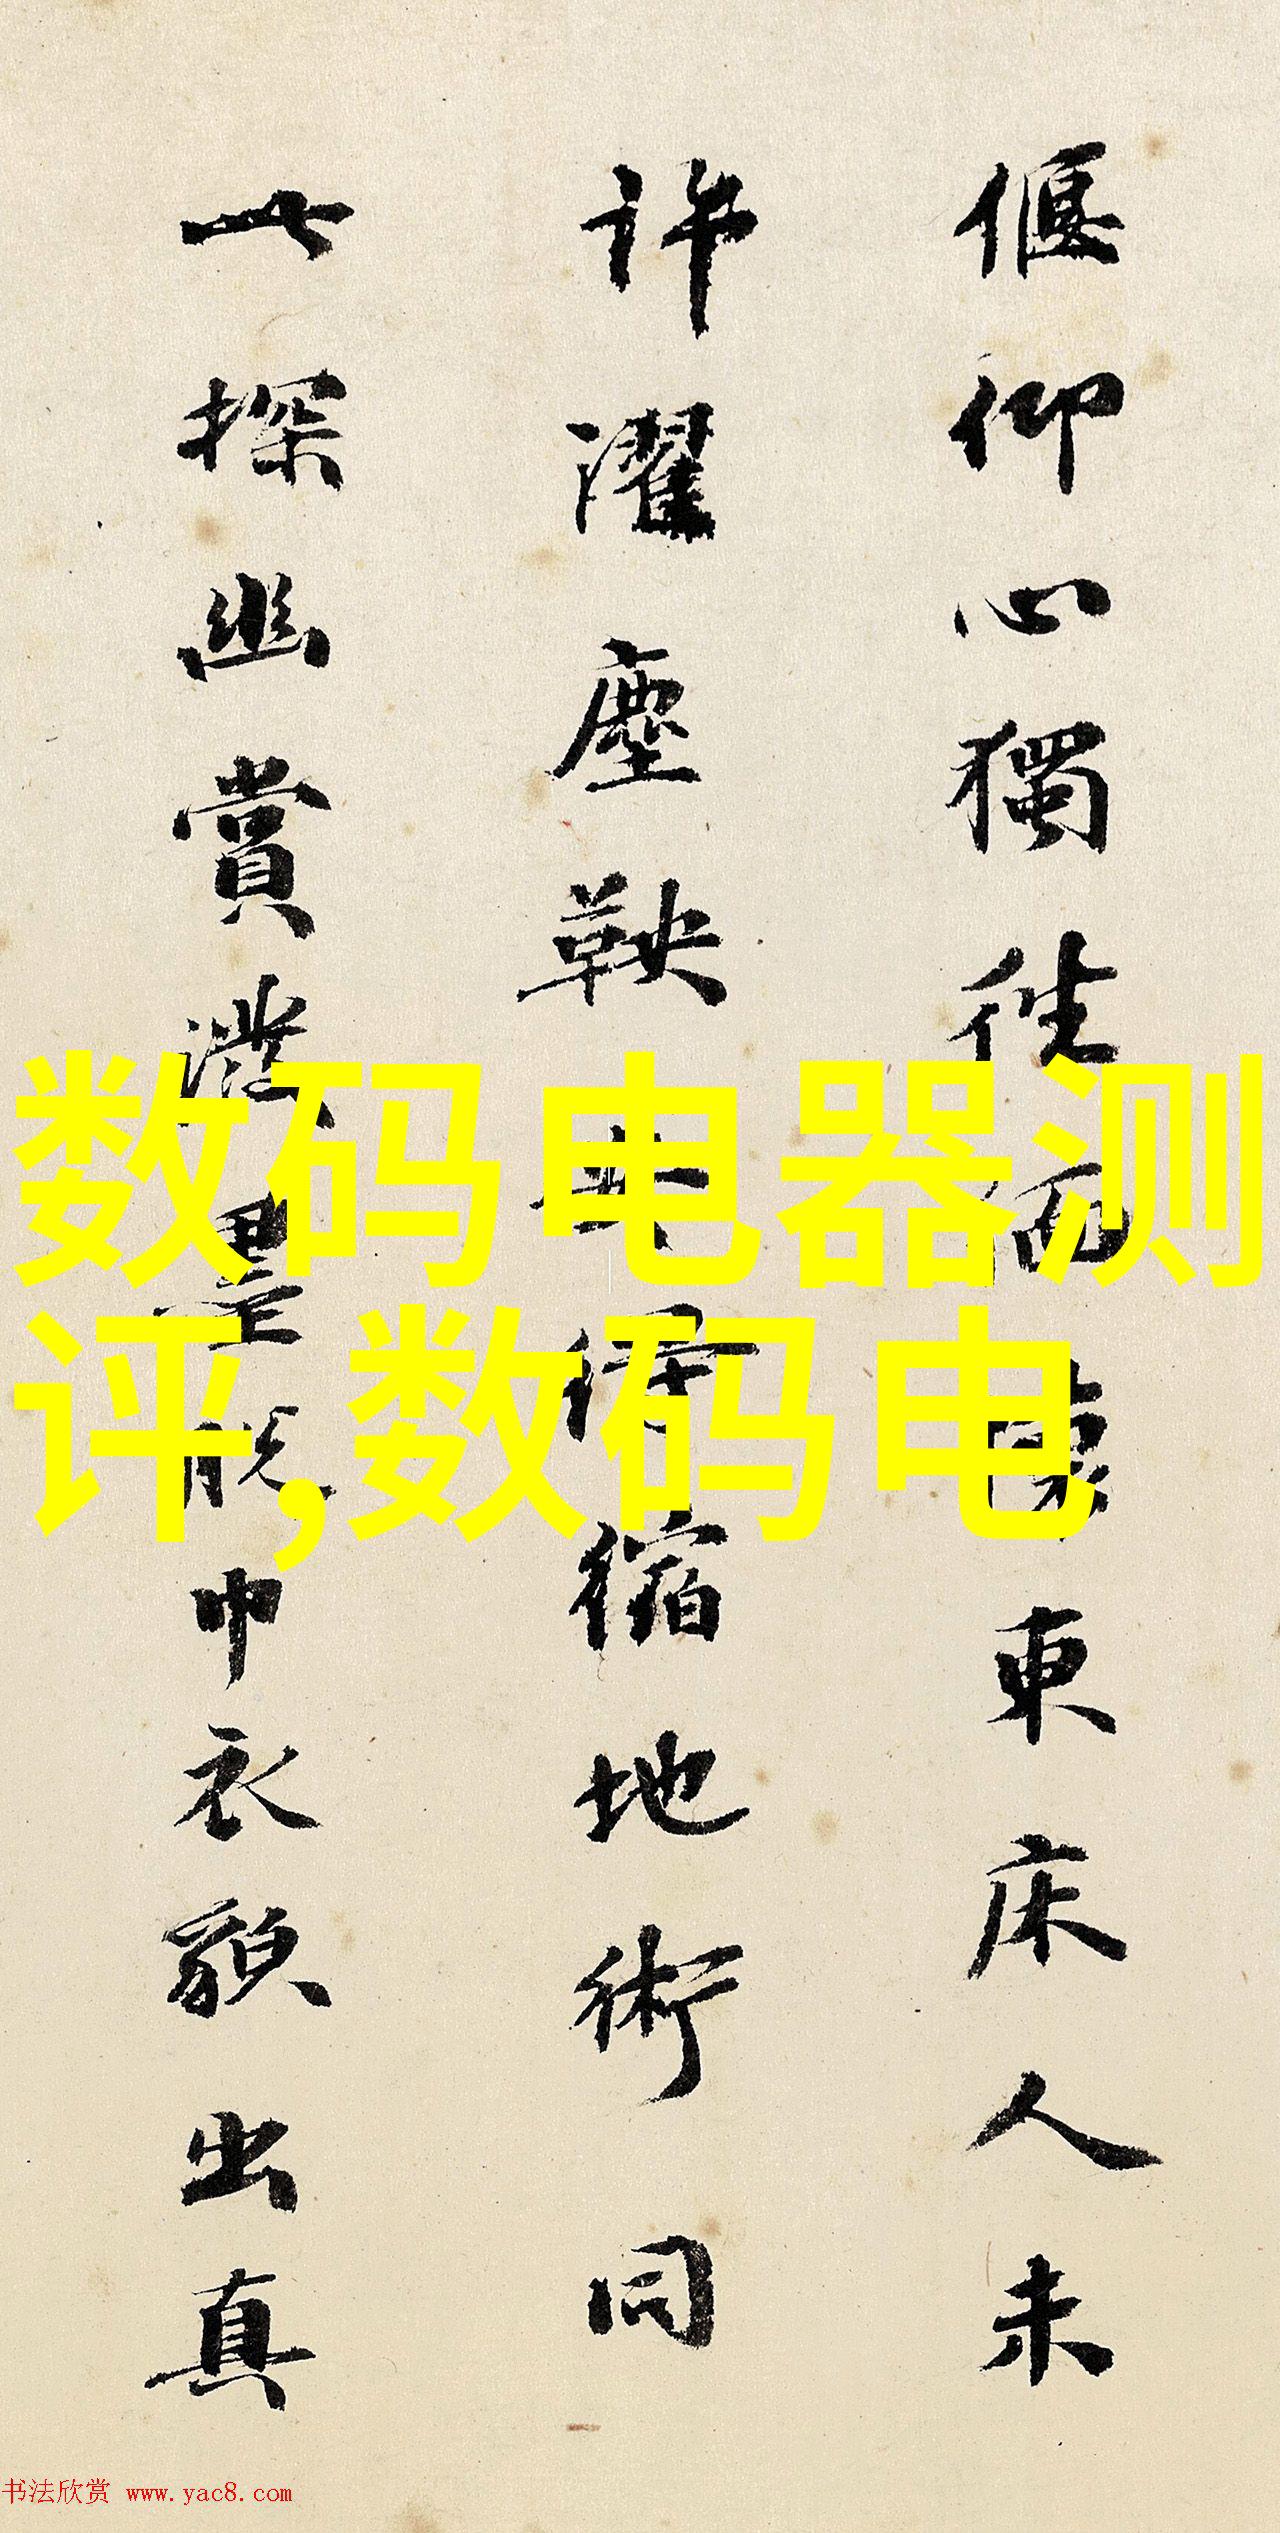 偃仰心獨往東床人未
許濯塵鞅安得縮地術同
此探幽賞潑墨脫巾衣貌出真
数码电器测
评,数码电
书法欣赏 www.yac8.com